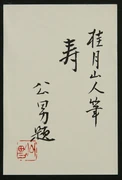 桂月山人筆
寿
公男題